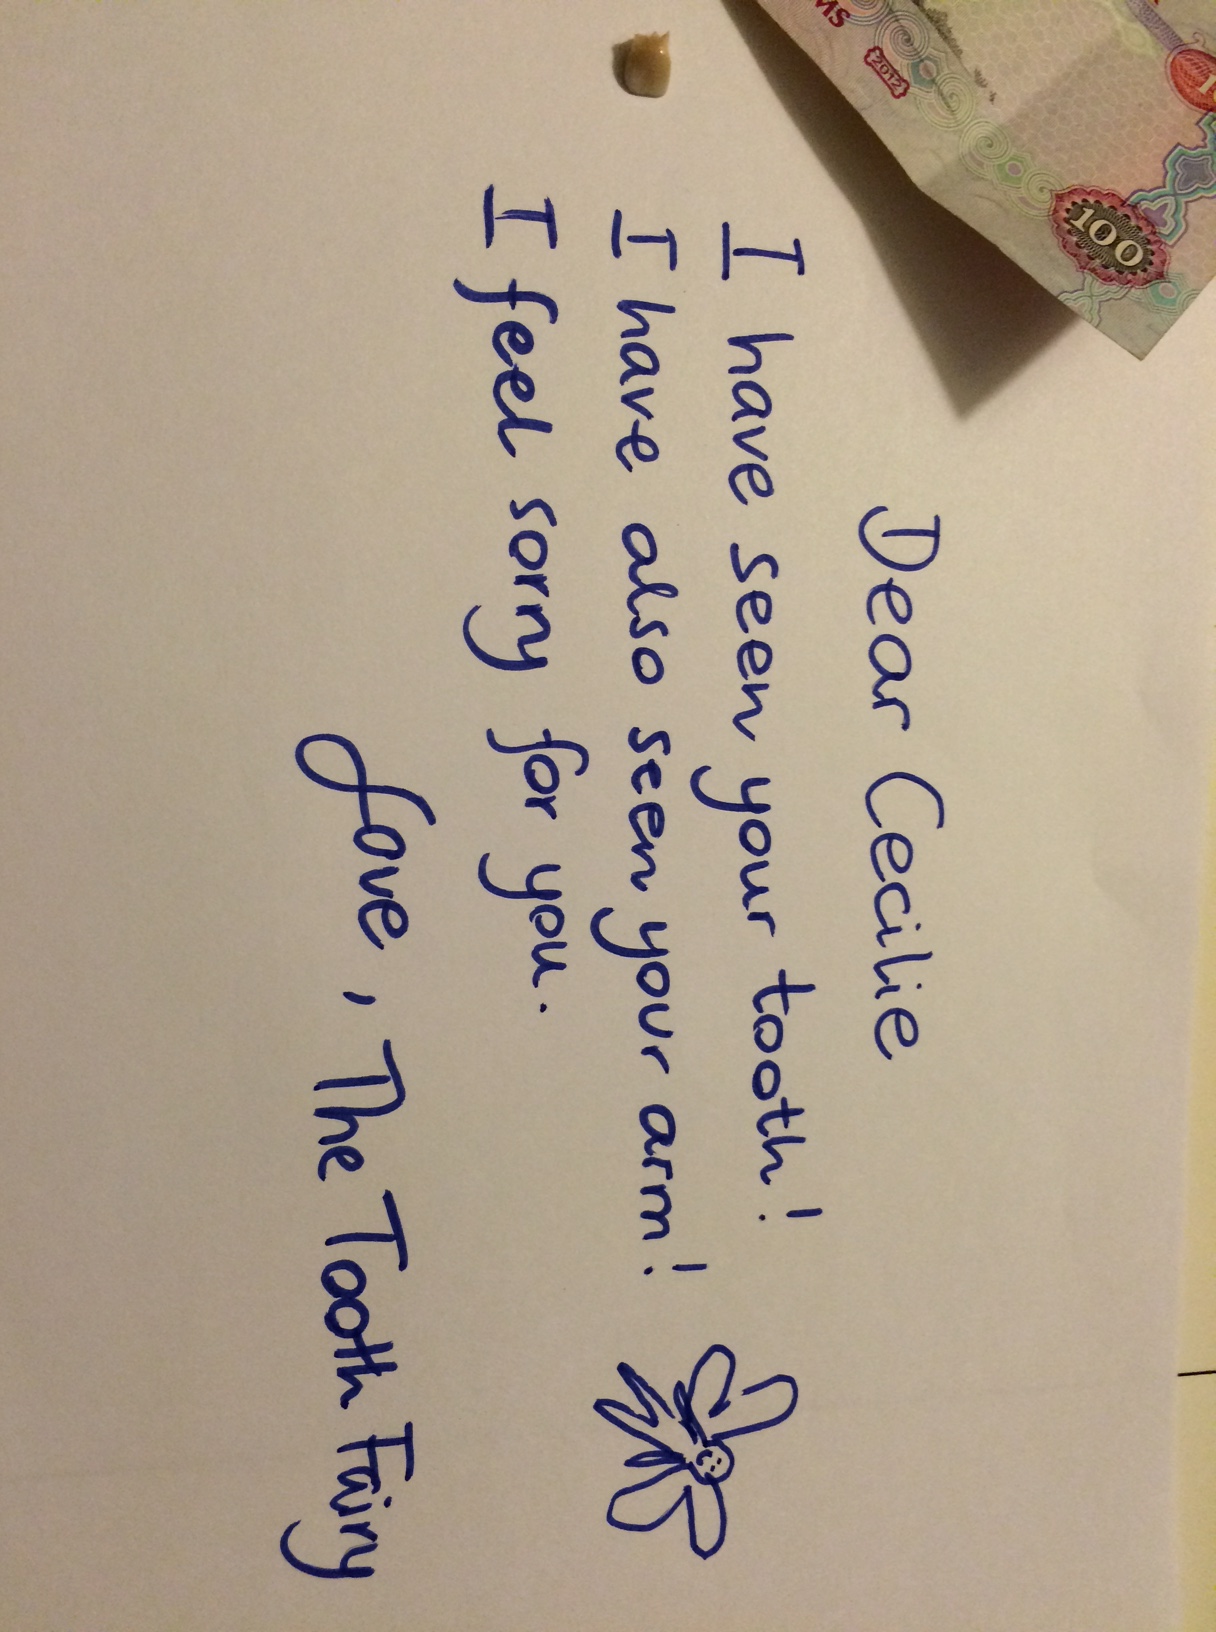 MS
2012
100
1
Dear Cecilie
I have seen your tooth!
I have also seen your arm!
I feel sorry for you.
Love, The Tooth Fairy